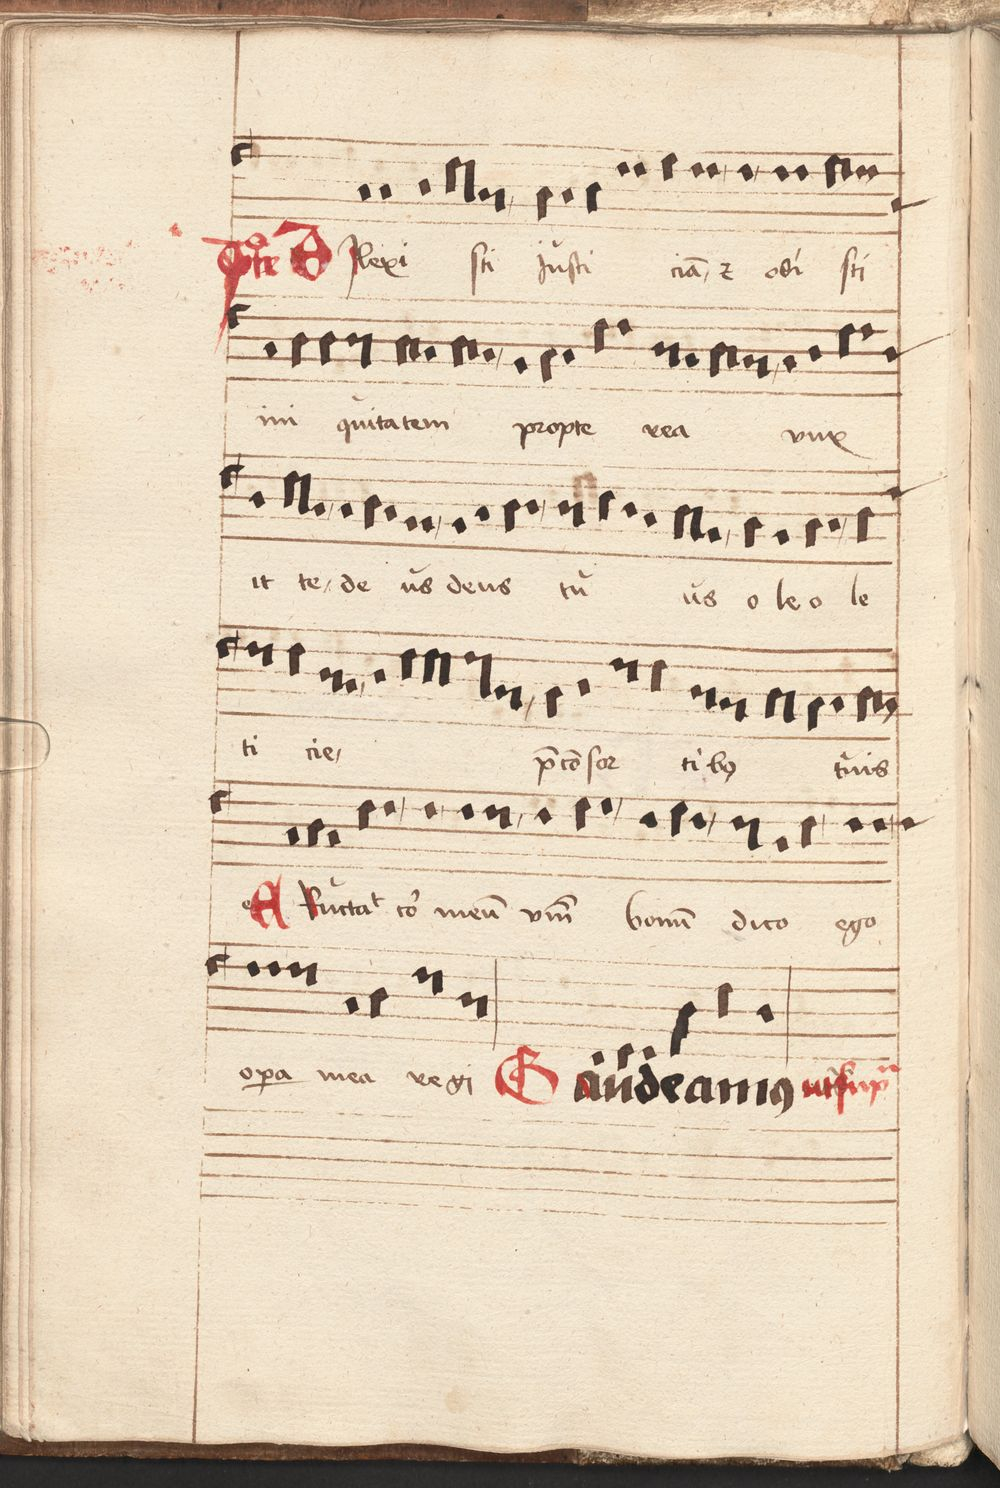 Dilexi sti iusti ciā, ⁊ odi sti
ini quitatem propte rea vnx
it te, de us deus tuus o le o le
ti cie, p̄cōsor tibꝯ tuis
eRucta^t cor meū vm̄ bonū dico ego
oꝑa mea regi Gaudeamꝯ ut sup̄